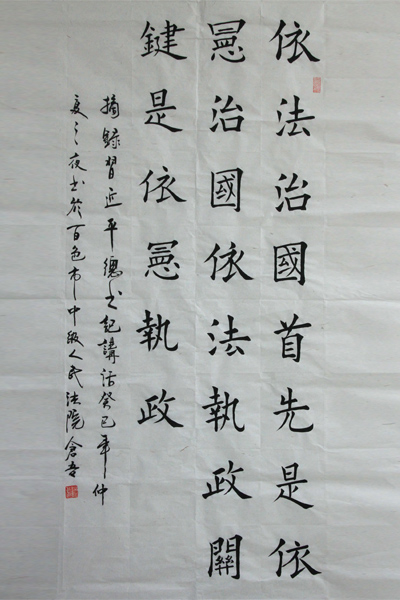 依法治國首先是依
憲治國依法執政關
鍵是依憲執政
摘録習近平總书記講話癸巳年仲
夏之夜书於百色市中级人民法院倉吾